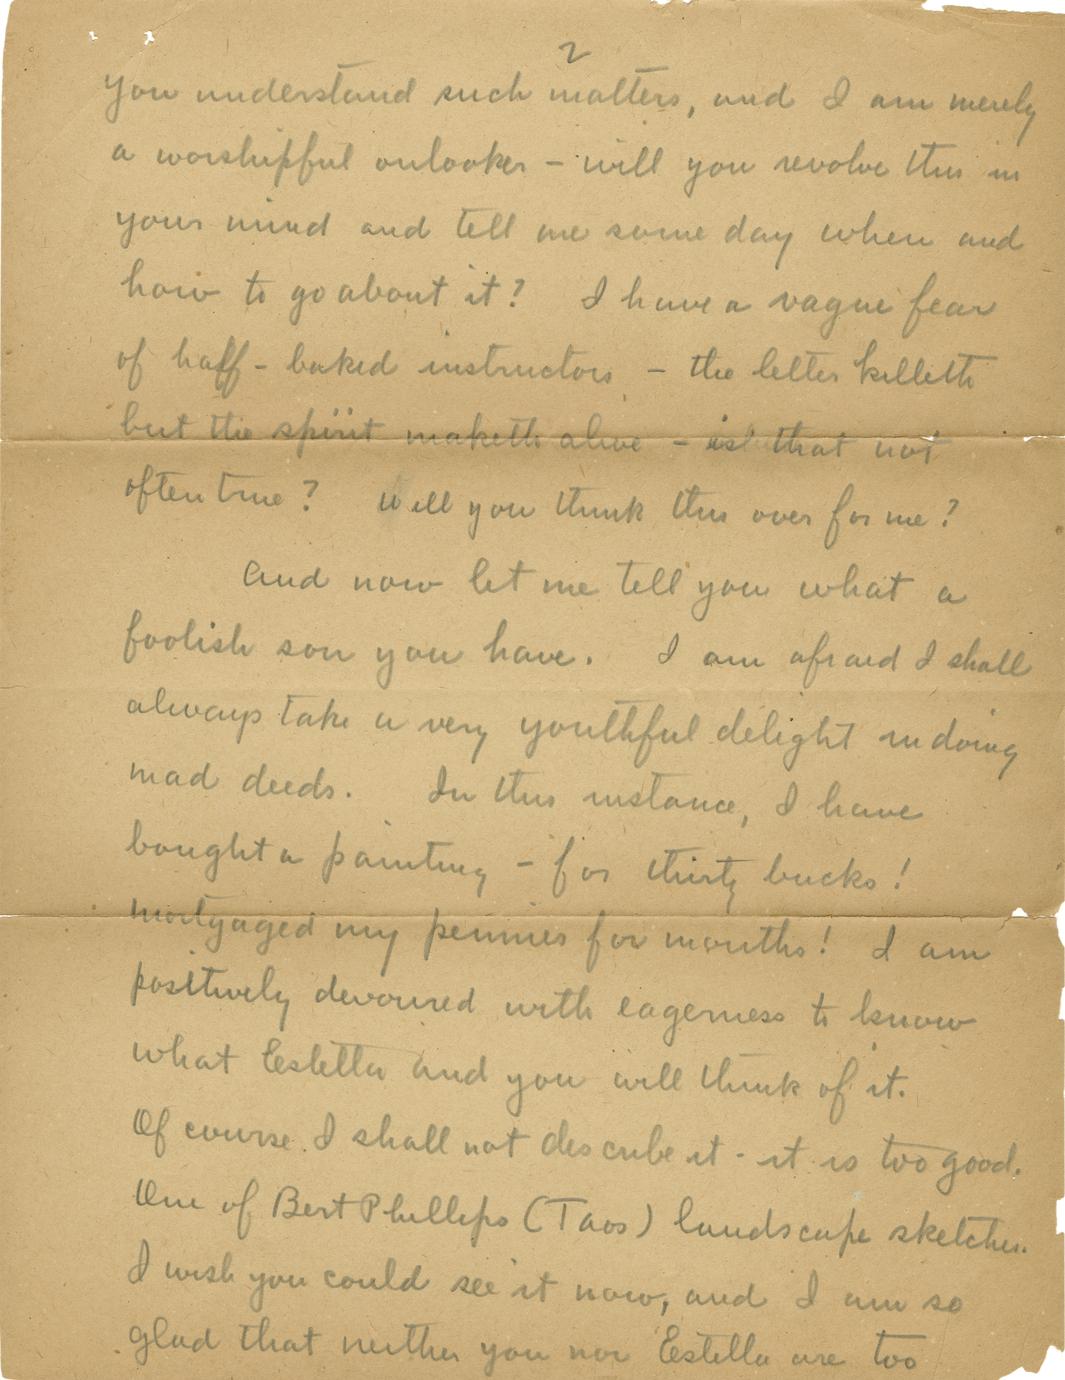 2
you understand such matters, and I am merely
a worshipful onlooker – will you revolve this in
your mind and tell me some day when and
how to go about it? I have a vague fear
of half-baked instructors – the letter killeth
but the spirit maketh alive – is that not
often true? Will you think this over for me?
And now let me tell you what a
foolish son you have. I am afraid I shall
always take a very youthful delight in doing
mad deeds. In this instance, I have
bought a painting – for thirty bucks!
mortgaged my pennies for months! I am
positively devoured with eagerness to know
what Estella and you will think of it.
Of course I shall not describe it - it is too good.
One of Bert Phillips (Taos) landscape sketches.
I wish you could see it now, and I am so
glad that neither you nor Estella are too